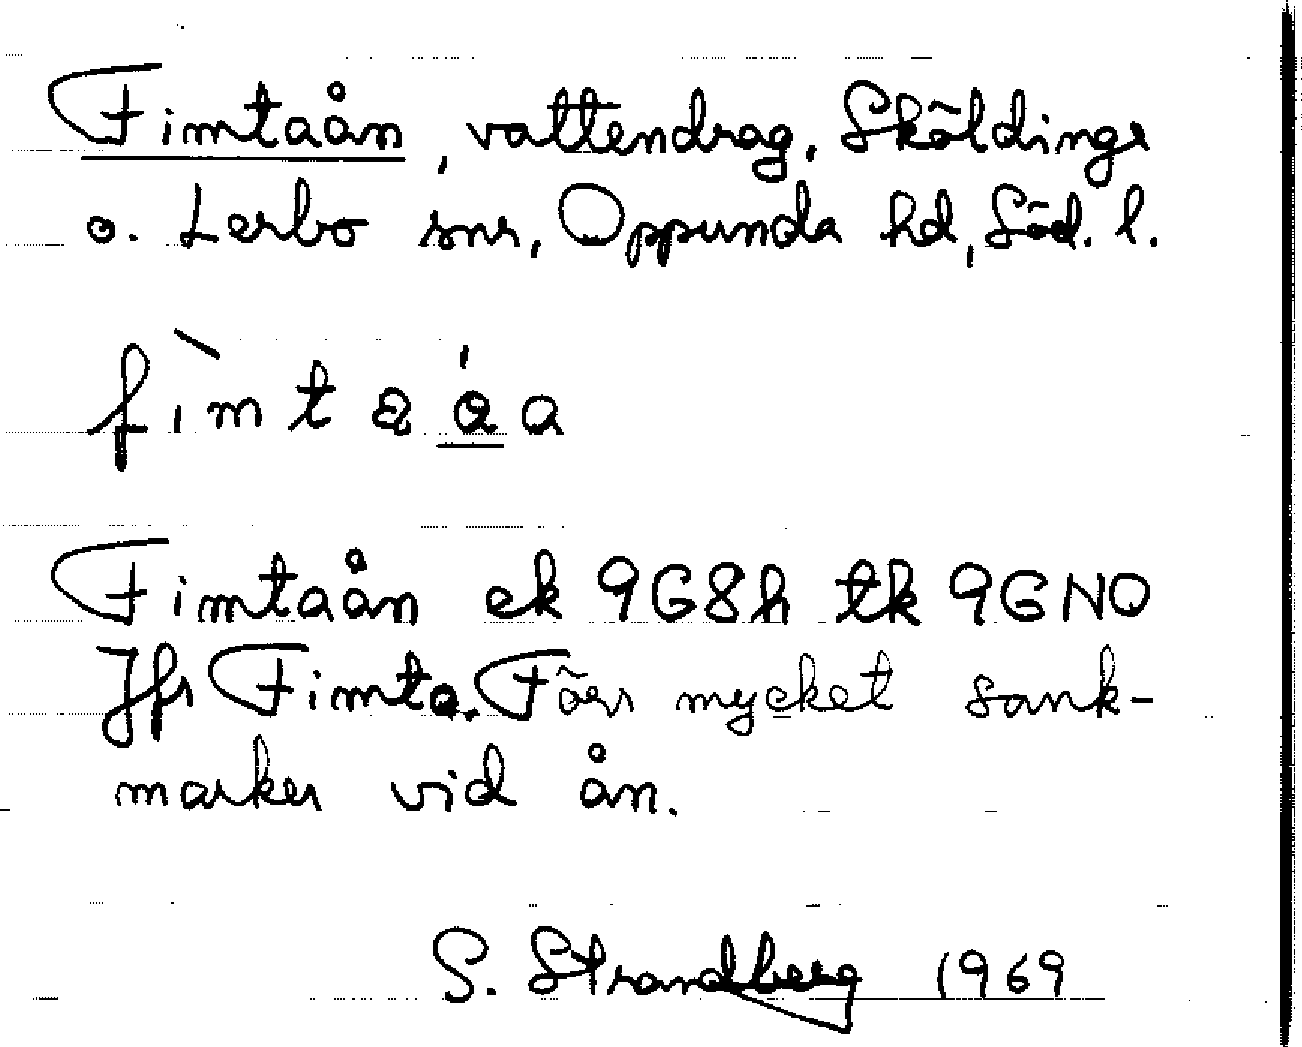 Fimtaån, vattendrag, Sköldinge
o. Lerbo snr, Oppunda hd, Söd. l.
fìmt
Fimtaån ek 9G8h tk 9GNO
Jfr Fimta. Förr mycket sank-
marker vid ån.
S. Strandberg 1969